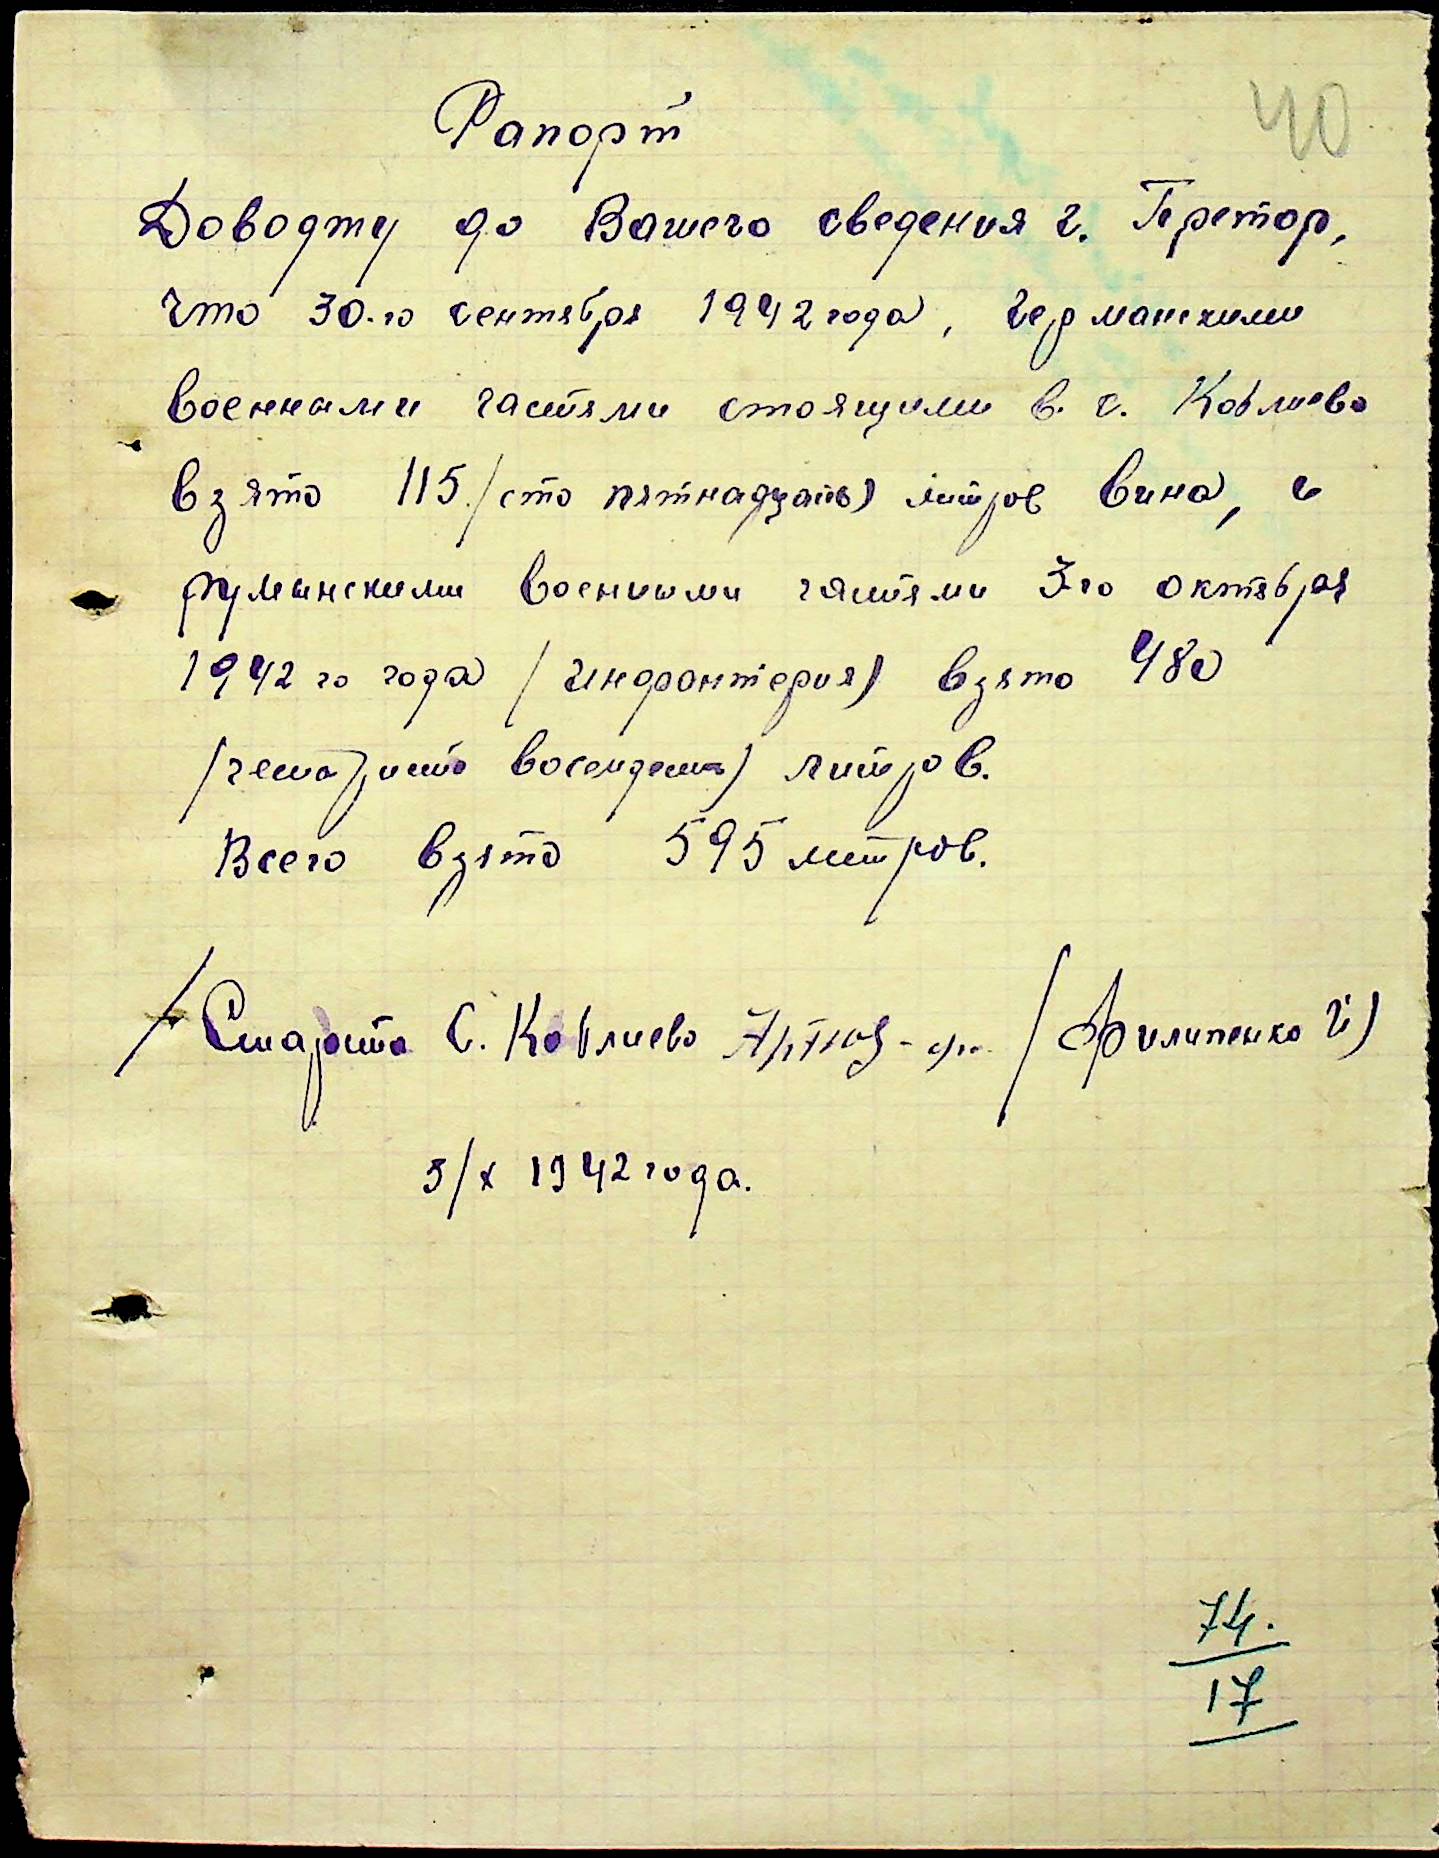 40
Рапорт
Довожу до Вашего сведения г. Претор,
что 30-го сентября 1942 года, германскими
военными частями стоящими в с. Коблиево
взято 115 /сто пятнадцать) литров вина, и
румынскими военными частями 3го октября
1942 го года /инфантерия) взято 480
/четыриста восемдесят) литров.
Всего взято 595 литров.
/Староста С. Коблиево /Филипенко И)
3/X 1942 года.
74.
17